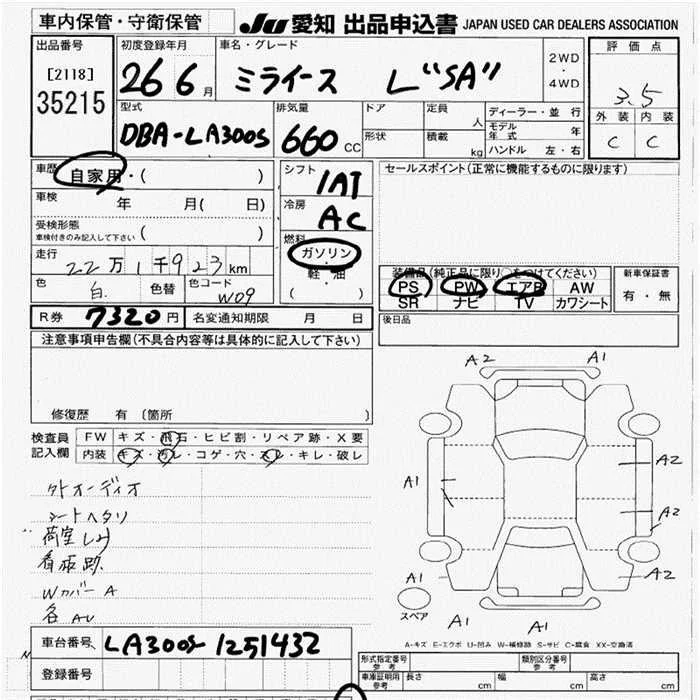 車内保管・守衛保管
JU 愛知 出品申込書 JAPAN USED CAR DEALERS ASSOCIATION
出品番号 初度登録年月 車名・グレード 評価点
[2118]
35215
26 6月 ミライース L"SA" 2WD・4WD
3.5
型式 排気量 ドア 定員 人 ディーラー・並行 外装 内装
DBA-LA300S 660CC 形状 積載 kg モデル年式 年 C C
ハンドル 左・右
車歴 自家用・( ) シフト 1AT セールスポイント(正常に機能するものに限ります)
車検 年 月( 日) 冷房 AC
受検形態
車検付きのみ記入して下さい ( ) 燃料
ガソリン
走行 22万1千923km 軽・油
( )
装備品(純正品に限り○をつけてください) 新車保証書
PS PW エアB AW 有・無
SR ナビ TV カワシート
色 白 色替 色コード W09
R券 7320円 名変通知期限 月 日 後日品
注意事項申告欄(不具合内容等は具体的に記入して下さい)
修復歴 有〔箇所 〕
検査員 FW キズ・飛石・ヒビ割・リペア跡・X要
記入欄 内装 キズ・汚レ・コゲ・穴・スレ・キレ・破レ
外オーディオ
シートヘタリ
荷室しみ
看板跡
Wカバー A
各AU
A2 A1
A1 A2
A2
A1 A2
スペア
A1 A1
A-キズ E-エクボ U-凹み W-補修跡 S-サビ C-腐食 XX-交換済
車台番号 LA300S-1251432
登録番号
形式指定番号 参考 類別区分番号 参考
車庫証明用 参考 長さ cm 幅 cm 高さ cm